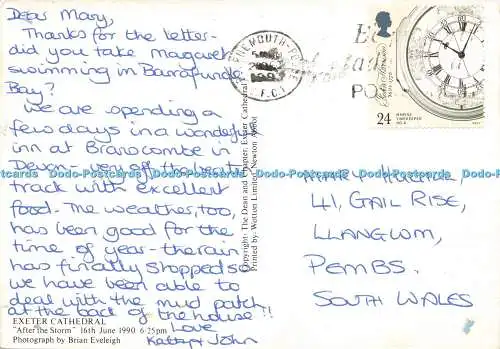 Dear Mary,
Thanks for the letter-
did you take Margaret
swimming in Barrafundle
Bay?
We are spending a
few days in a wonderful
inn at Branscombe in
Devon - very off the beaten
track with excellent
food. The weather, too,
has been good for the
time of year - the rain
has finally stopped so
we have been able to
deal with the mud patch
at the back of the house!!
Love
John
EXETER CATHEDRAL
"After the Storm" 16th June 1990 6·25pm
Photograph by Brian Eveleigh
Copyright: The Dean and Chapter, Exeter Cathedral
Printed by: Wetton Limited, Newton Abbot
POS
24
MARINE
TIMEKEEPER
NO. 4
41, GAIL RISE,
LLANGWM,
PEMBS.
SOUTH WALES
Dodo-Postcards Dodo-Postcards Dodo-Postcards Dodo-Postcards Dodo-Postcards